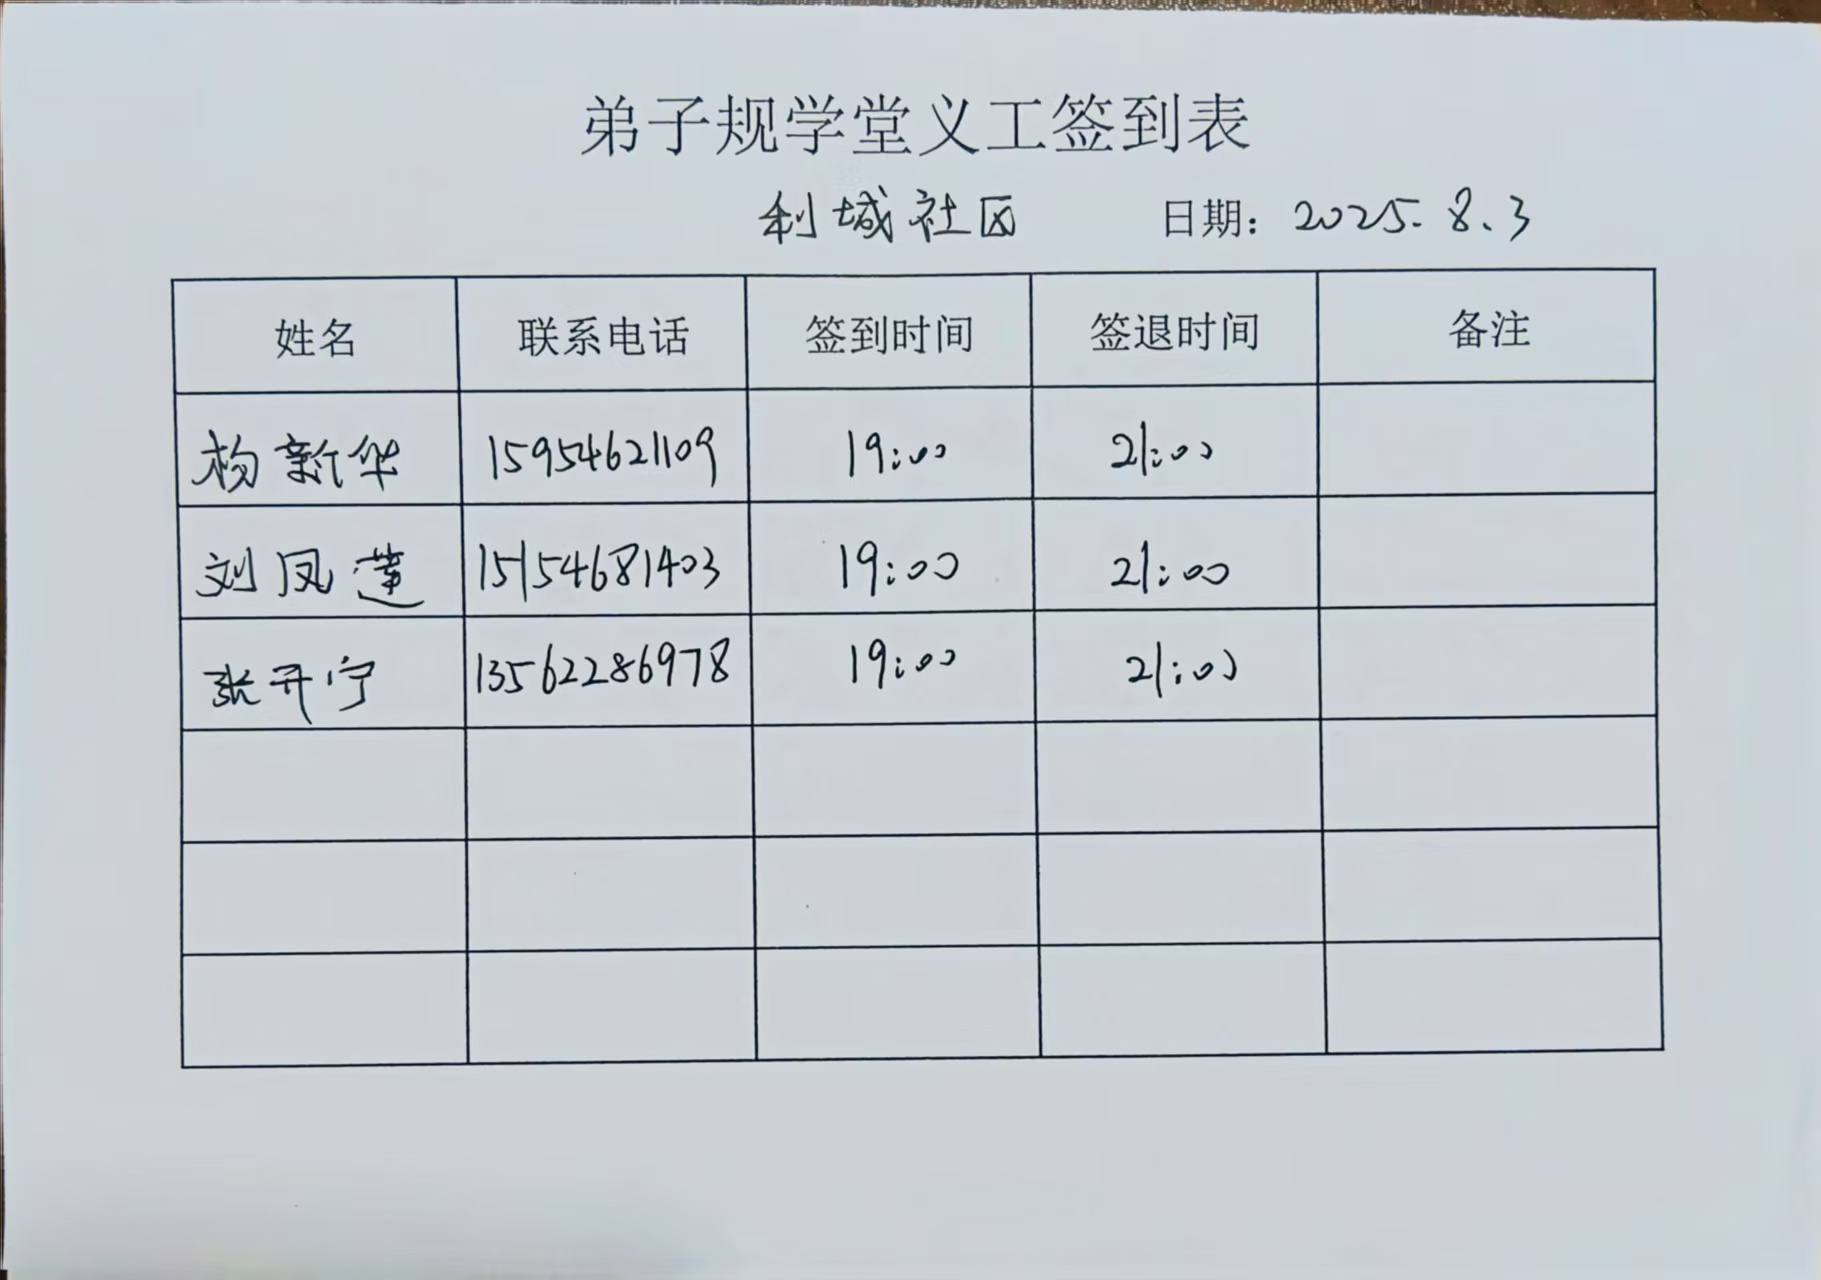 弟子规学堂义工签到表
利城社区 日期: 2025.8.3
姓名 联系电话 签到时间 签退时间 备注
杨新华 15954621109 19:00 21:00
刘凤莲 15154681403 19:00 21:00
张开宁 13562286978 19:00 21:00